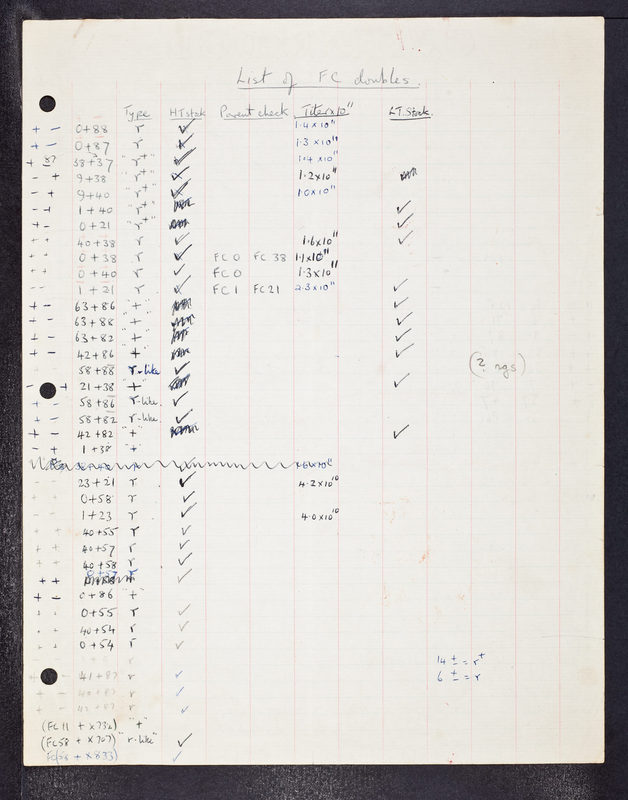 List of FC doubles.
Type HT stok Parent check Titer x10" LT. Stock.
+ - 0+88 r ✓ 1.4 x 10"
+ - 0+87 r 1.3 x 10"
+ 38+37 "r+" ✓ 1.4 x 10"
- + 9+38 "r+" 1.2 x 10"
- + 9+40 "r+" 1.0 x 10"
- + 1+40 "r+" ✓
- + 0+21 "r+" ✓
+ + 40+38 r ✓ 1.6 x 10" ✓
+ + 0+38 r ✓ FC 0 FC 38 1.1 x 10"
+ + 0+40 r ✓ FC 0 1.3 x 10"
- - 1+21 r ✓ FC 1 FC 21 2.3 x 10" ✓
+ - 63+86 "+" ✓
+ - 63+88 "+" ✓
+ - 63+82 "+" ✓
+ - 42+86 "+" ✓
58+88 r-like ✓
- + 21+38 "+" ✓
+ - 58+86 r-like ✓
+ - 58+82 r-like. ✓
+ - 42+82 "+" ✓
- + 1+38 "+"
(? rgs)
- - 23+21 r ✓ 4.2 x 10¹⁰
0+58 r ✓
1+23 r ✓ 4.0 x 10¹⁰
+ + 40+55 r ✓
+ + 40+57 r ✓
40+58 r ✓
+ + ✓
+ - 0+86 "+"
+ + 0+55 r ✓
+ + 40+54 r ✓
+ + 0+54 r ✓
+ - 41+87 r ✓
+ - 40+87 r ✓
+ - 42+87 r ✓
14 ± = r+
6 ± = r
(FC11 + X732) "+"
(FC58 + X707) "r-like" ✓
(FC58 + X833) ✓